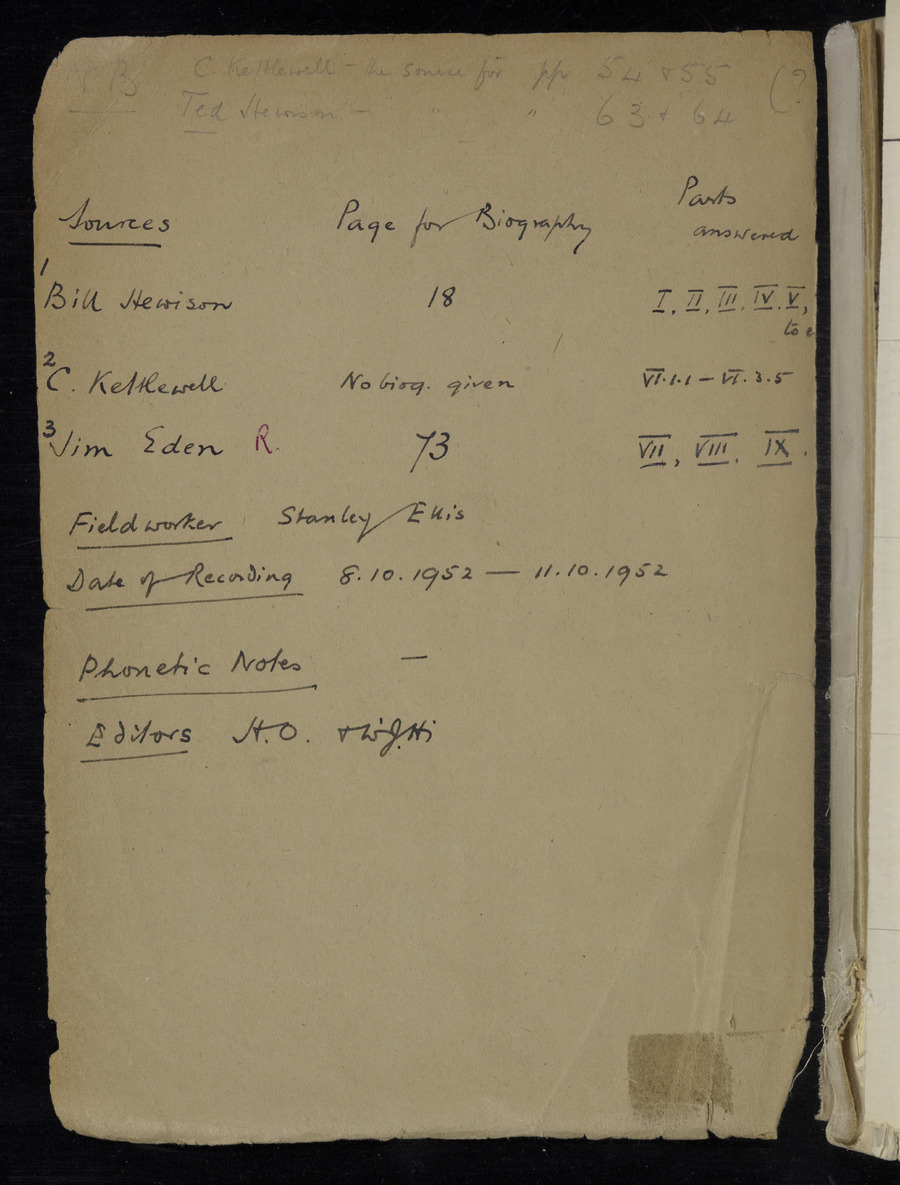 N B C. Kettlewell - the source for pp 54 & 55 (?
Ted Hewison - " " 63 & 64
Sources Page for Biography Parts answered
1 Bill Hewison 18 I, II, III, IV, V,
to
2 C. Kettlewell No biog. given VI.1.1 - VI.3.5
3 Jim Eden R. 73 VII, VIII, IX.
Fieldworker Stanley Ellis
Date of Recording 8.10.1952 — 11.10.1952
Phonetic Notes —
Editors H.O. & W.J.H.